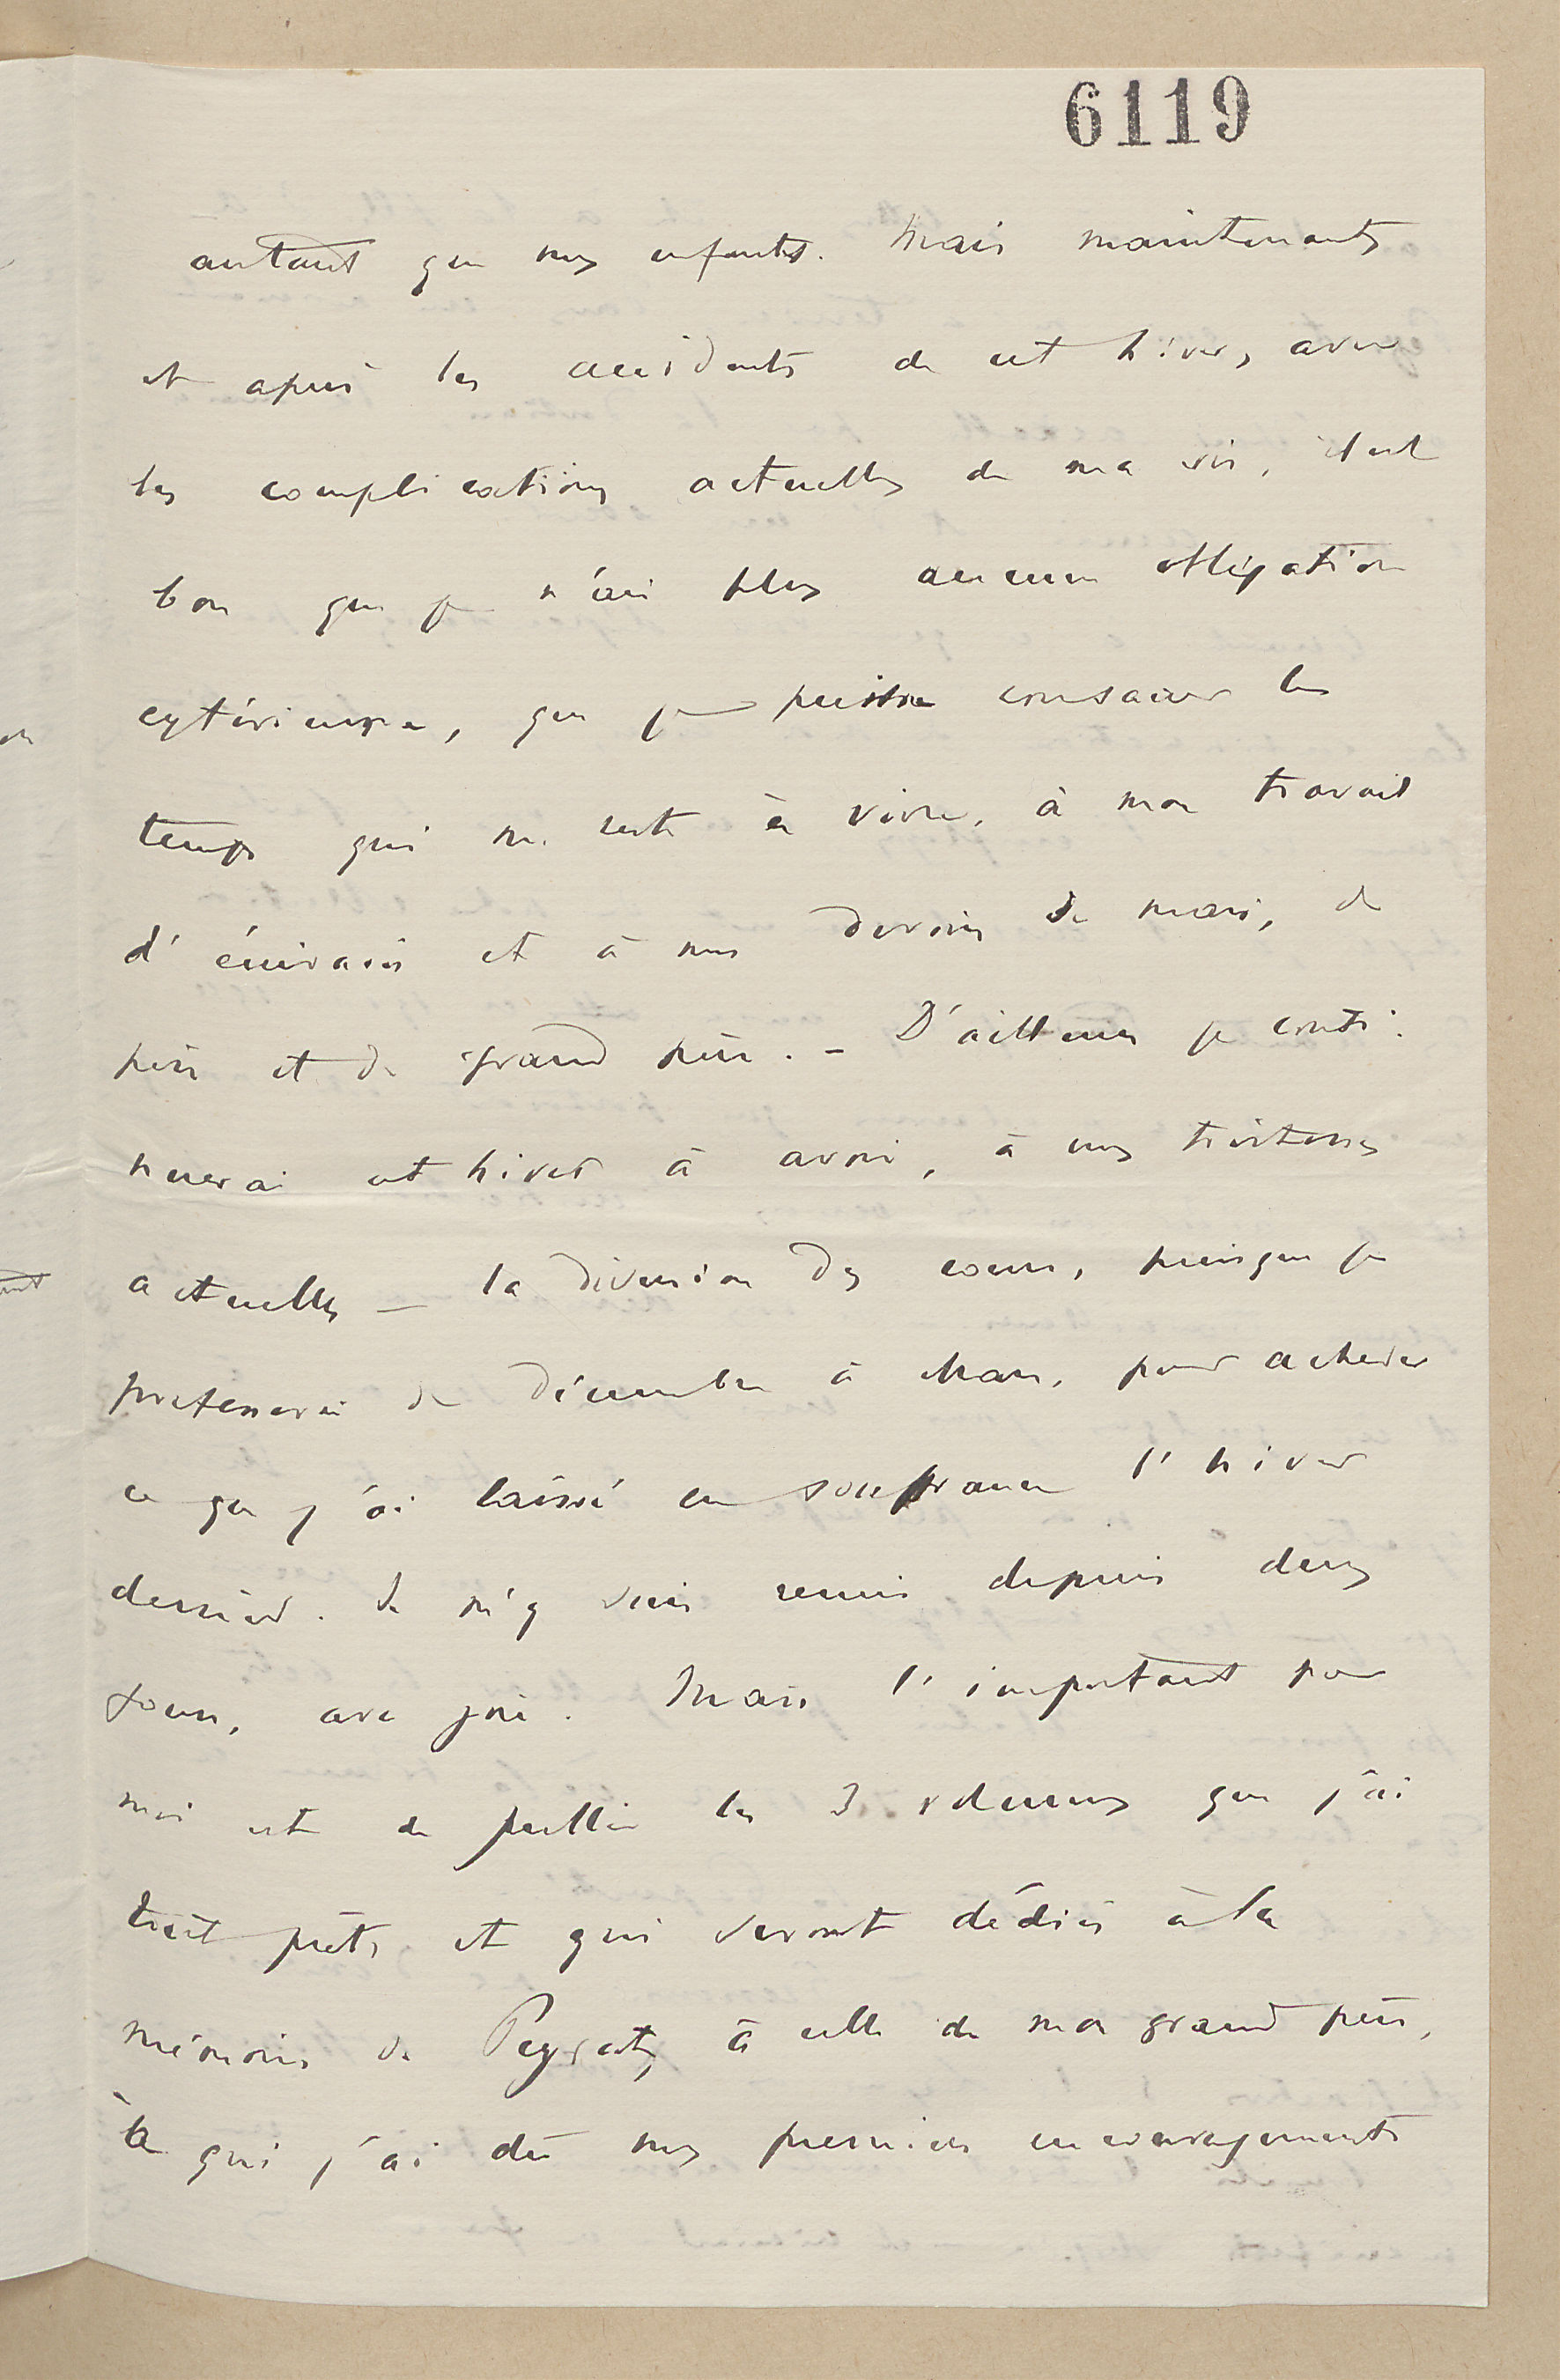 6119
autant que mes enfants. Mais maintenant,
et après les accidents de cet hiver, avec
les complications actuelles de ma vie, il est
bon que je n'aie plus aucune obligation
extérieure, que je puisse consacrer le
temps qui me reste à vivre, à mon travail
d'écrivain et à mes devoirs de mari, de
père et de grand père. - D'ailleurs je conti-
nuerai cet hiver à avoir, à mes tristesses
actuelles - la diversion des cours, puisque je
professerai de décembre à Mars, pour achever
ce que j'ai laissé en souffrance l'hiver
dernier. Je m'y suis remis depuis deux
jours, avec joie. Mais l'important pour
moi est de publier les 3 volumes que j'ai
tout prêts et qui seront dédiés à la
mémoire de Peyrat, à celle de mon grand père,
à qui j'ai dû mes premiers encouragements